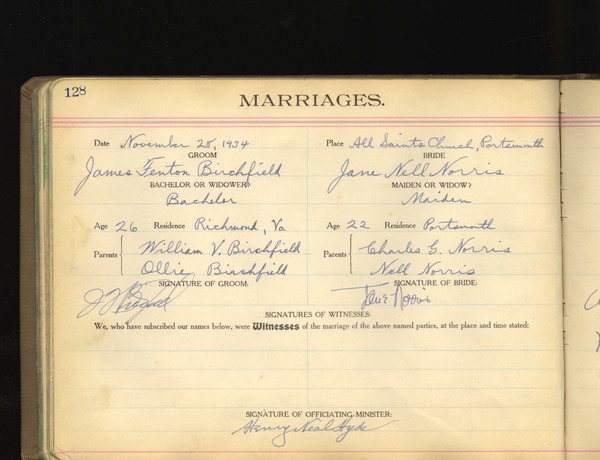 128
MARRIAGES.
Date November 28, 1934 Place All Saints Church, Portsmouth
GROOM BRIDE
James Fenton Birchfield Jane Nell Norris
BACHELOR OR WIDOWER? MAIDEN OR WIDOW?
Bachelor Maiden
Age 26 Residence Richmond, Va Age 22 Residence Portsmouth
Parents { William V. Birchfield Parents { Charles G. Norris
Ollie Birchfield Nell Norris
SIGNATURE OF GROOM: SIGNATURE OF BRIDE:
Jane Norris
SIGNATURES OF WITNESSES:
We, who have subscribed our names below, were Witnesses of the marriage of the above named parties, at the place and time stated:
SIGNATURE OF OFFICIATING MINISTER:
Henry Neal Hyde